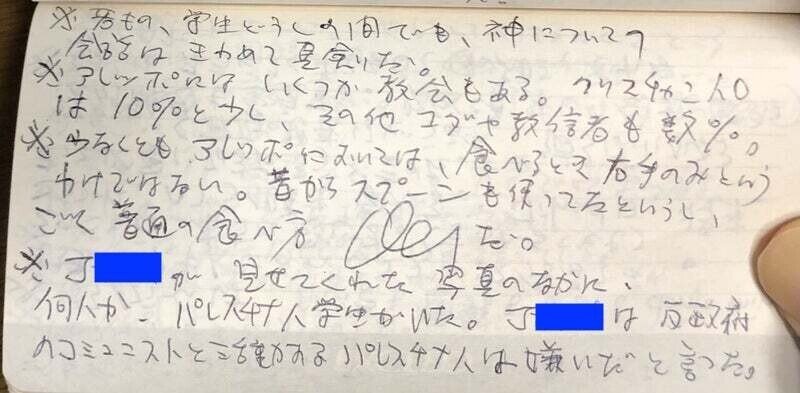 ※若もの、学生どうしの間でも、神についての
会話はきわめて真剣だ。
※アレッポにはいくつか教会もある。クリスチャン人口
は10%と少し、その他ユダヤ教信者も数%。
※少なくともアレッポにおいては、食べるとき右手のみという
わけではない。昔からスプーンも使ってたというし、
ごく普通の食べ方だ。
※J が見せてくれた写真のなかに、
何人か、パレスチナ人学生がいた。J は反政府
のコミュニストと活動するパレスチナ人は嫌いだと言った。